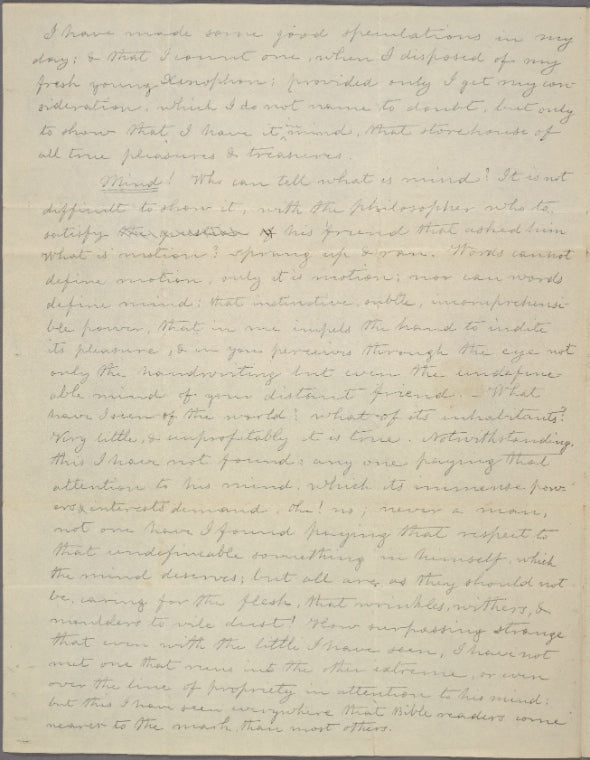 I have made some good speculations in my
day; & that I count one, when I disposed of my
fresh young Xenophon; provided only I get my con-
sideration, which I do not name to doubt, but only
to show that I have it in mind, that storehouse of
all true pleasures & treasures.
Mind! Who can tell what is mind? It is not
difficult to show it, with the philosopher who to
satisfy the question of his friend that asked him
what is motion? sprung up & ran. Words cannot
define motion, only it is motion; nor can words
define mind; that instinctive, subtle, incomprehensi-
ble power, that in me impels the hand to indite
its pleasure, & in you perceives through the eye not
only the handwriting but even the undefine-
able mind of your distant friend. – What
have I seen of the world? what of its inhabitants?
Very little, & unprofitably it is true. Notwithstanding,
this I have not found; any one paying that
attention to his mind, which its immense pow-
ers & interests demand. Oh! no; never a man,
not one have I found paying that respect to
that undefineable something in himself, which
the mind deserves; but all are, as they should not
be, caring for the flesh, that wrinkles, withers, &
moulders to vile dust! How surpassing strange
that even with the little I have seen, I have not
met one that runs into the other extreme, or even
over the line of propriety in attention to his mind;
but this I have seen everywhere that Bible readers come
nearer to the mark, than most others.